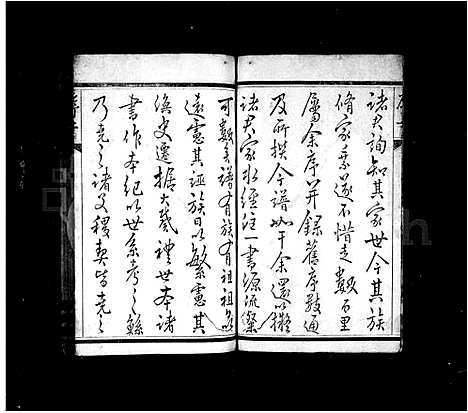 诸君詢知其家世今其族
脩家乘遂不惜走數百里
屬余序并錄舊序數通
及所撰今譜如干余還以擬
諸君家水經注一書源流燦
可數乎譜有族有祖祖
遠憲其誣族日以繁憲其
渙史遷據大戴禮世本諸
書作本紀以世系考之鯀
乃堯之諸父稷契皆堯之